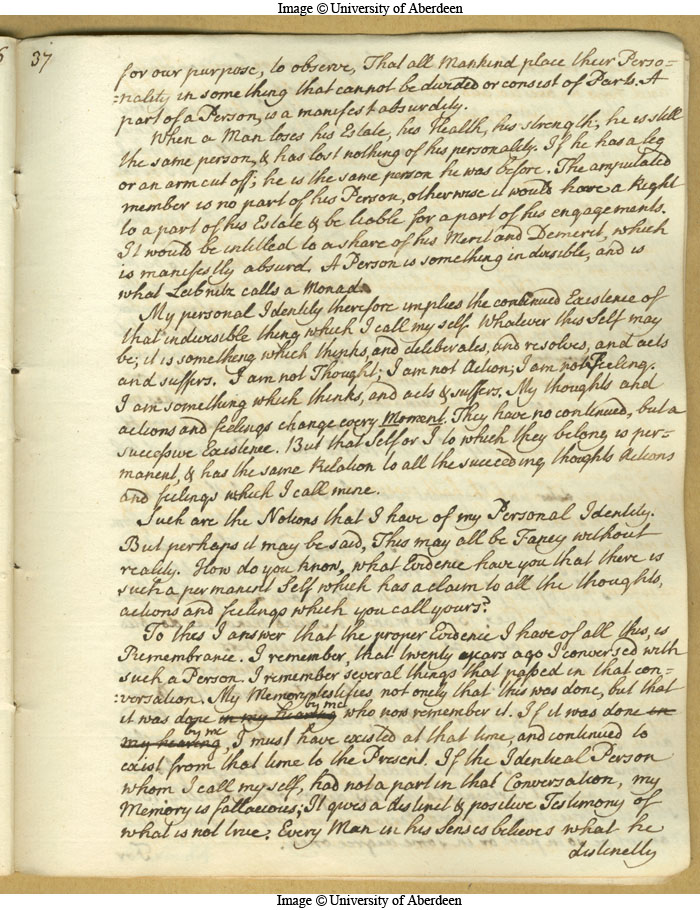 Image © University of Aberdeen
37
for our purpose, to observe, That all Mankind place their Perso=
=nality in something that cannot be divided or consist of Parts. A
part of a Person, is a manifest absurdity.
When a Man loses his Estate, his Health, his strength; he is still
the same person, & has lost nothing of his personality. If he has a leg
or an arm cut off; he is the same person he was before. The amputated
member is no part of his Person, otherwise it would have a Right
to a part of his Estate & be liable for a part of his engagements.
It would be intitled to a share of his Merit and Demerit, which
is manifestly absurd. A Person is something indivisible, and is
what Leibnitz calls a Monad.
My personal Identity therefore implies the continued Existence of
that indivisible thing which I call my self. Whatever this Self may
be; it is something which thinks, and deliberates, and resolves, and acts
and suffers. I am not Thought; I am not Action; I am not Feeling.
I am something which thinks, and acts & suffers. My thoughts and
actions and feelings change every Moment. They have no continued, but a
successive Existence. But that Self or I to which they belong is per-
manent, & has the same Relation to all the succeeding thoughts Actions
and feelings which I call mine.
Such are the Notions that I have of my Personal Identity.
But perhaps it may be said, This may all be Fancy without
reality. How do you know, what Evidence have you that there is
such a permanent Self which has a claim to all the thoughts,
actions and feelings which you call yours?
To this I answer that the proper Evidence I have of all this, is
Remembrance. I remember, that twenty years ago I conversed with
such a Person. I remember several things that passed in that con-
=versation. My Memory testifies not only that this was done, but that
by me
it was done in my hearing who now remember it. If it was done in
by me
my hearing, I must have existed at that time, and continued to
exist from that time to the Present. If the Identical Person
whom I call myself, had not a part in that Conversation, my
Memory is fallacious; It gives a distinct & positive Testimony of
what is not true. Every Man in his Senses believes what he
distinctly
Image © University of Aberdeen